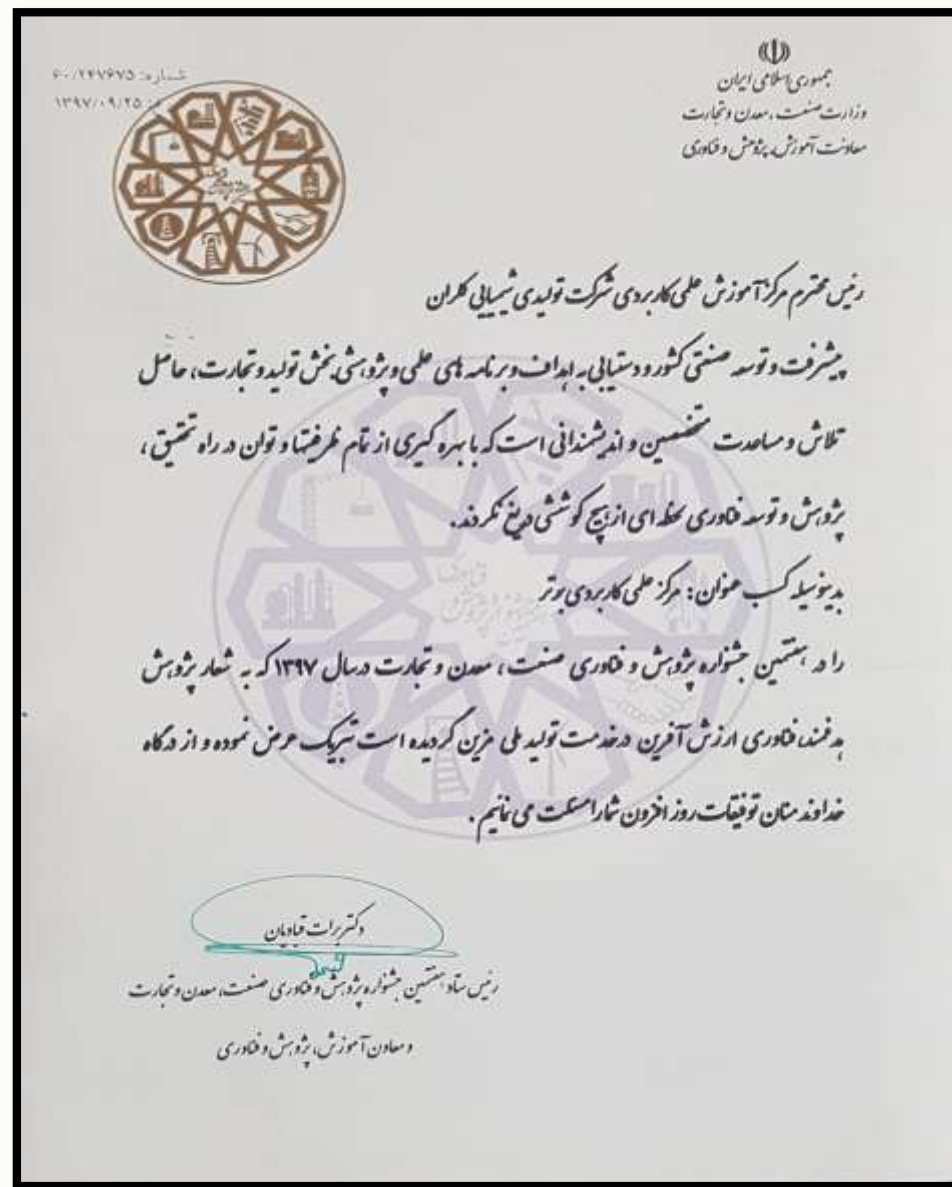 جمهوری اسلامی ایران
وزارت صنعت، معدن و تجارت
معاونت آموزش، پژوهش و فناوری
شماره: ۶۰/۲۴۷۶۷۵
۱۳۹۷/۰۹/۲۵
رئیس محترم مرکز آموزش علمی کاربردی شرکت تولیدی شیمیایی کلران
پیشرفت و توسعه صنعتی کشور و دستیابی به اهداف و برنامه های علمی و پژوهشی بخش تولید و تجارت، حاصل
تلاش و مساعدت متخصصین و اندیشمندانی است که با بهره گیری از تمام ظرفیتها و توان در راه تحقیق ،
پژوهش و توسعه فناوری لحظه ای از هیچ کوششی دریغ نکردند.
بدینوسیله کسب عنوان: مرکز علمی کاربردی برتر
را در هفتمین جشنواره پژوهش و فناوری صنعت ، معدن و تجارت درسال ۱۳۹۷ که به شعار پژوهش
هدفمند، فناوری ارزش آفرین درخدمت تولید ملی مزین گردیده است تبریک عرض نموده و از درگاه
خداوند منان توفیقات روز افزون شما را مسئلت می نمائیم .
دکتر برات قبادیان
رئیس ستاد هفتمین جشنواره پژوهش و فناوری صنعت، معدن و تجارت
و معاون آموزش، پژوهش و فناوری